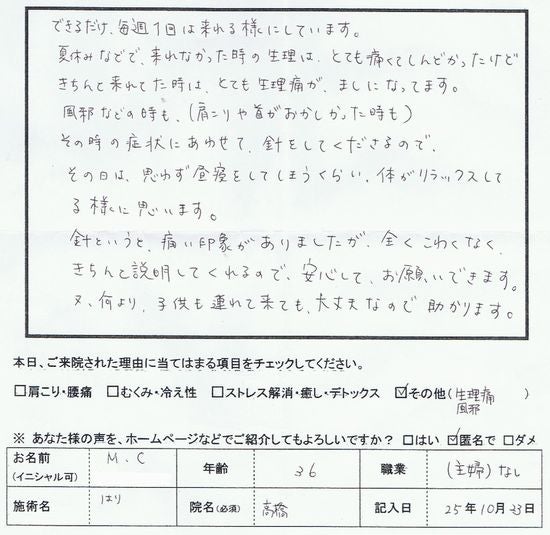 できるだけ、毎週1回は来れる様にしています。
夏休みなどで、来れなかった時の生理は、とても痛くてしんどかったけど
きちんと来れてた時は、とても生理痛が、ましになってます。
風邪などの時も、(肩こりや首がおかしかった時も)
その時の症状にあわせて、針をしてくださるので、
その日は、思わず昼寝をしてしまうくらい、体がリラックスして
る様に思います。
針というと、痛い印象がありましたが、全くこわくなく、
きちんと説明してくれるので、安心して、お願いできます。
又、何より、子供も連れて来ても、大丈夫なので助かります。
本日、ご来院された理由に当てはまる項目をチェックしてください。
□肩こり・腰痛 □むくみ・冷え性 □ストレス解消・癒し・デトックス ☑その他(生理痛 風邪)
※ あなた様の声を、ホームページなどでご紹介してもよろしいですか? □はい ☑匿名で □ダメ
お名前 (イニシャル可) M.C 年齢 36 職業 (主婦)なし
施術名 はり 院名(必須) 高橋 記入日 25年10月23日